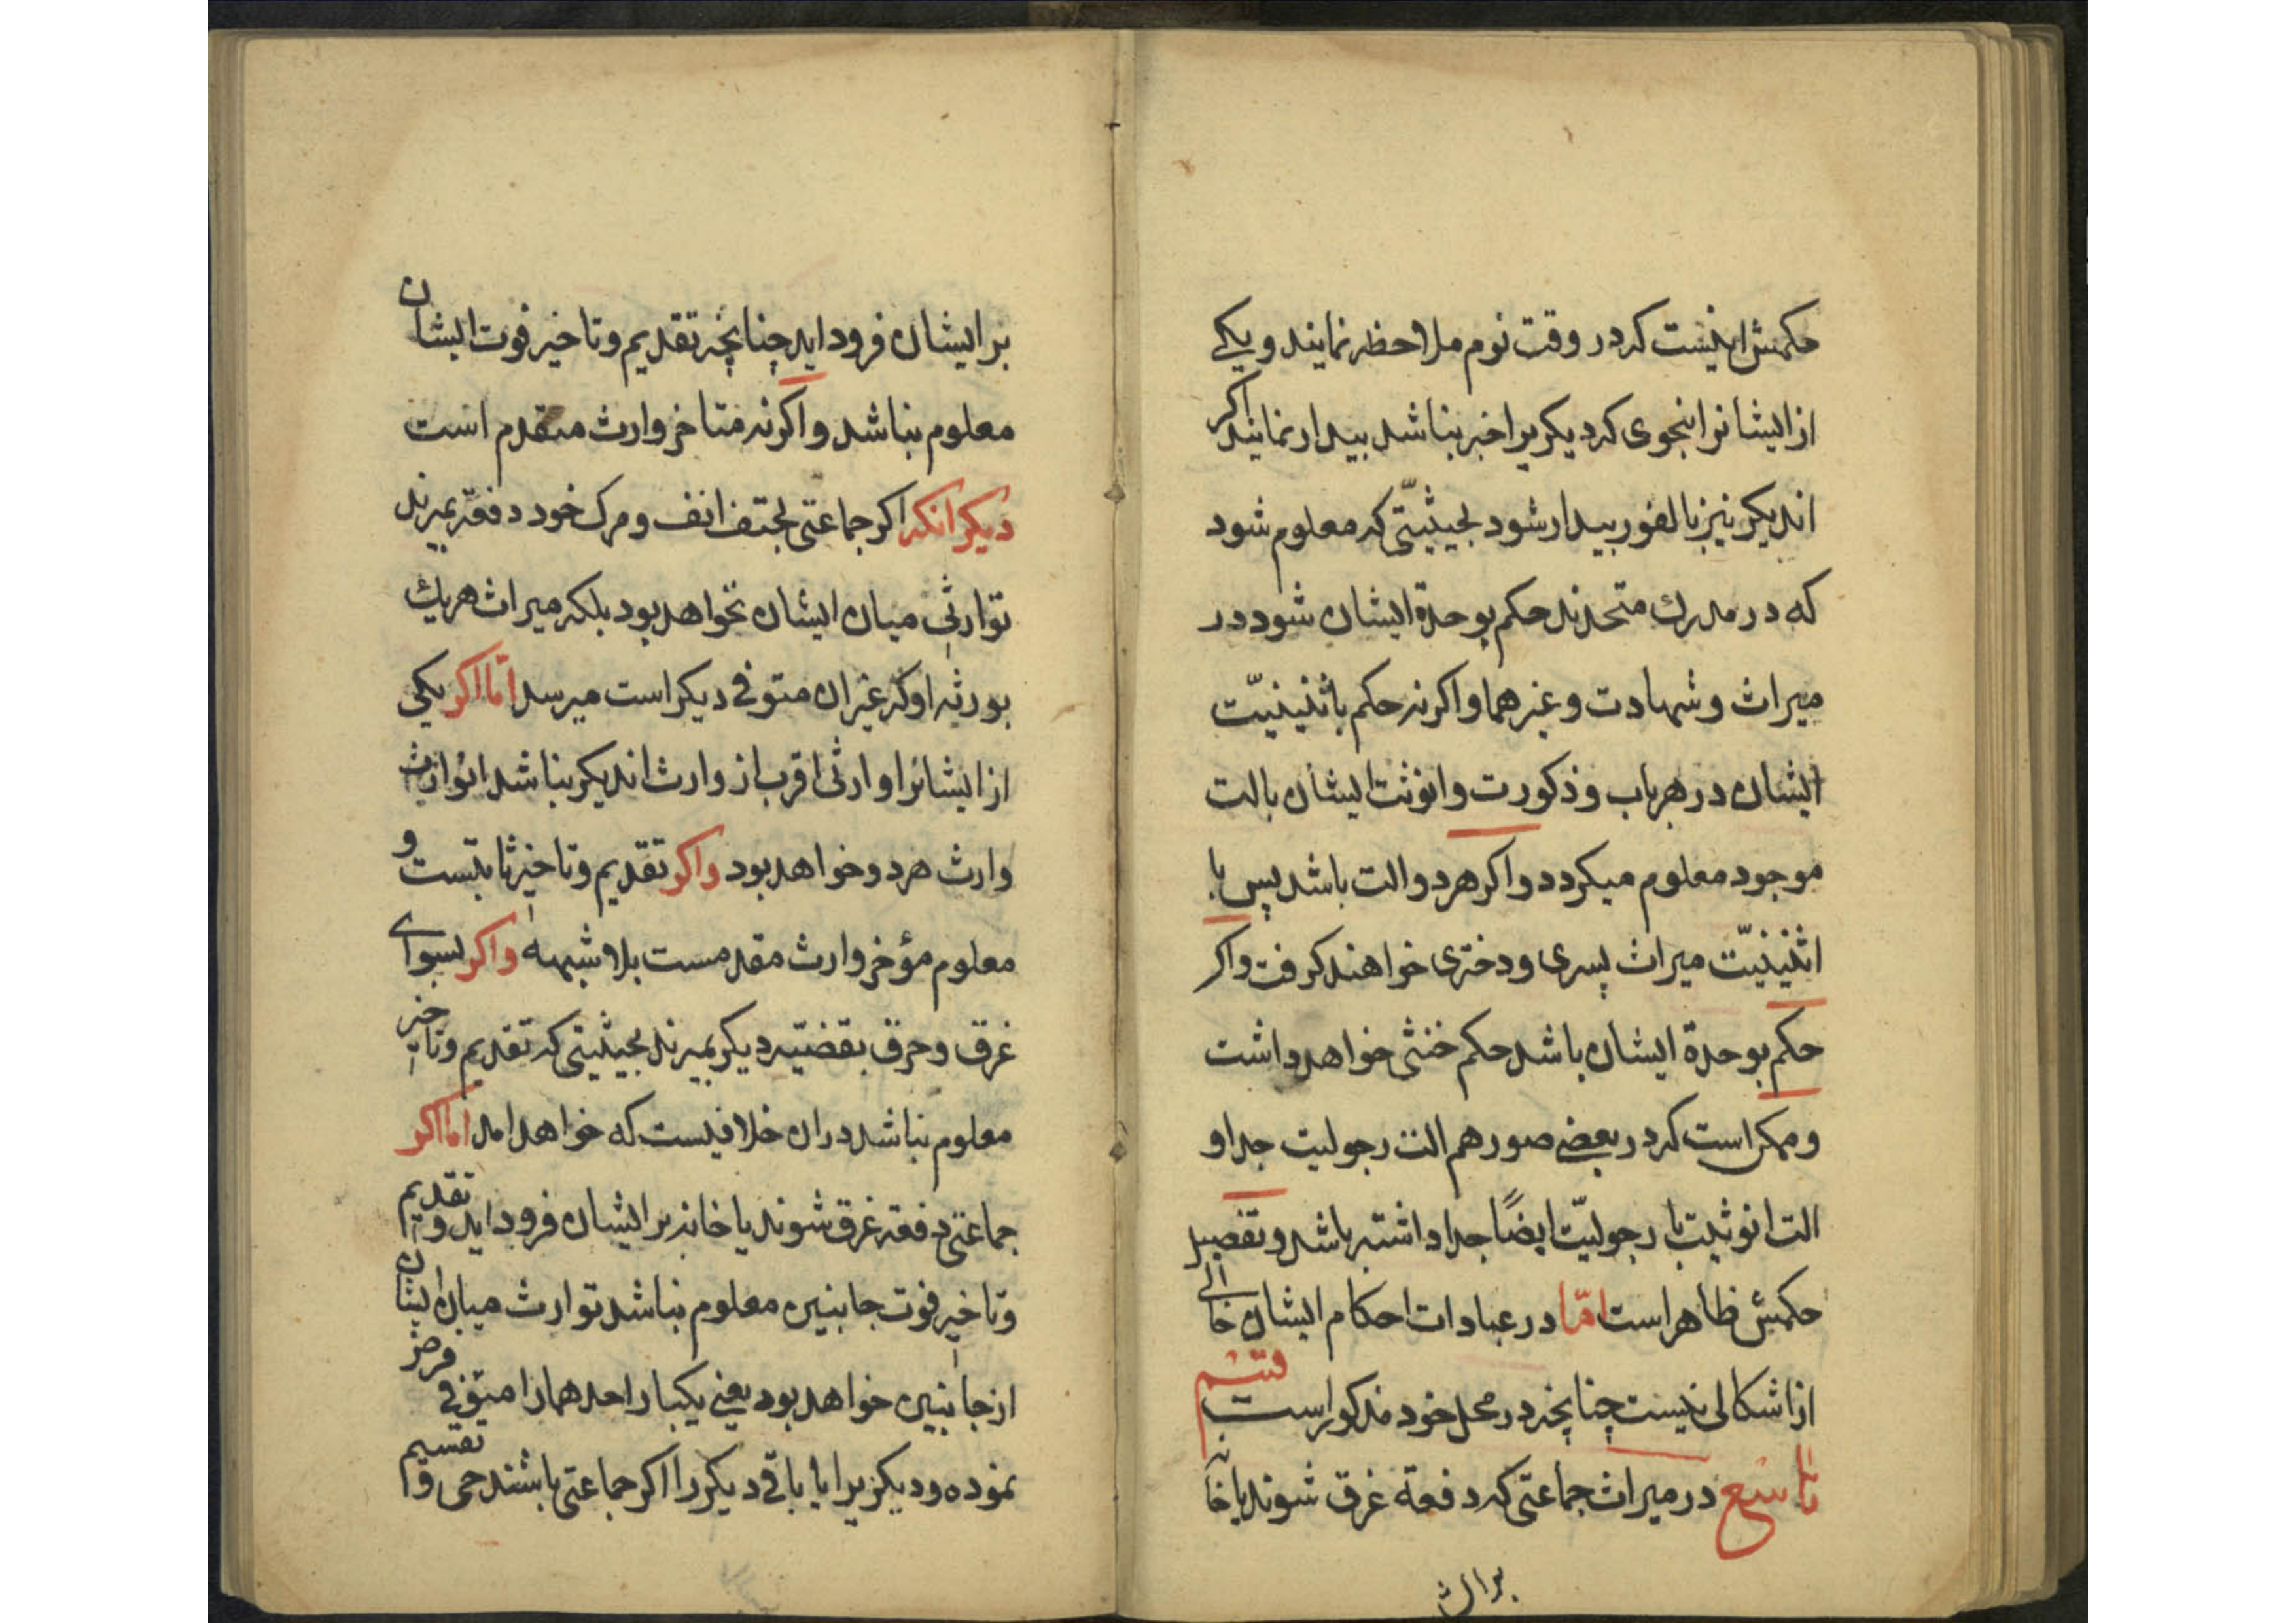 حکمش اینست که در وقت نوم ملاحظه نمایند و یکی
از ایشانرا بنحوی که دیکریرا خبر نباشد بیدار نمایند اکر
اندیکر نیز بالفور بیدار شود بحیثیتی که معلوم شود
که در مدرک متحدند حکم بوحدة ایشان شود در
میراث و شهادت و غیرهما و اکر نه حکم باثنینیّت
ایشان در هر باب و ذکورت و انوثت ایشان بالت
موجود معلوم میکردد و اکر هر دو الت باشد پس با
اثنینیّت میراث پسری و دختری خواهند کرفت و اکر
حکم بوحدة ایشان باشد حکم خنثی خواهد داشت
و ممکن است که در بعضی صور هم الت رجولیت جدا و
الت انوثیت با رجولیّت ایضًا جدا داشته باشد و تفصیل
حکمش ظاهر است امّا در عبادات احکام ایشان خالی
از اشکالی نیست چنانچه در محل خود مذکور است قسم
تاسع در میراث جماعتی که دفعة غرق شوند یا خانه
بر ایش
بر ایشان فرود اید چنانچه تقدیم و تاخیر فوت ایشان
معلوم نباشد و اکر نه متاخر وارث متقدم است
دیکر انکه اکر جماعتی بحتف انف و مرک خود دفعة بمیرند
توارثی میان ایشان نخواهد بود بلکه میراث هریک
بورثه او که غیر ان متوفی دیکر است میرسد امّا اکر یکی
از ایشانرا وارثی اقرب از وارث اندیکر نباشد انوارث
وارث هر دو خواهد بود و اکر تقدیم و تاخیر ثابتست و
معلوم مؤخر وارث مقدمست بلا شبهه و اکر بسوای
غرق و حرق بقضیّه دیکر بمیرند بحیثیتی که تقدیم و تاخیر
معلوم نباشد دران خلافیست که خواهد امد اما اکر
جماعتی دفعة غرق شوند یا خانه بر ایشان فرود اید و تقدیم
و تاخیر فوت جانبین معلوم نباشد توارث میان ایشان
از جانبین خواهد بود یعنی یکبار احدهما را متوفی فرض
نموده و دیکریرا با باقی دیکر را اکر جماعتی باشند حی و تقسیم